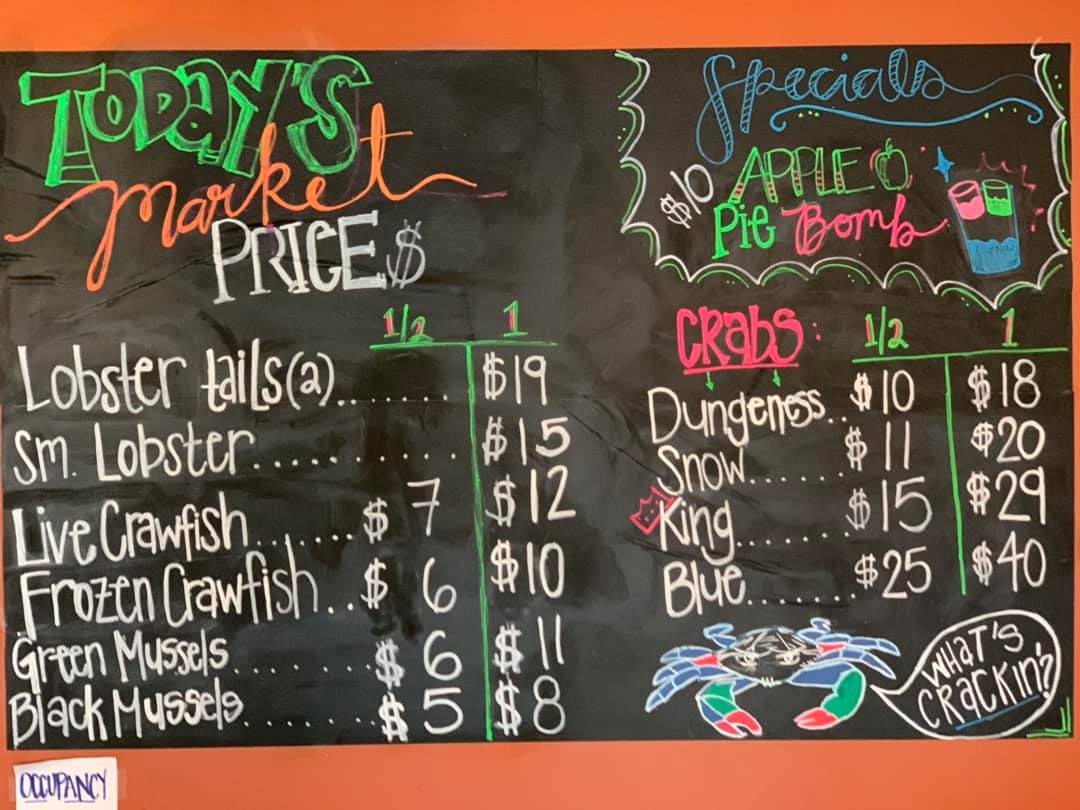 TODAY'S
market
PRICE$
1/2 1
Lobster tails(2)........ $19
Sm. Lobster........... $15
Live Crawfish.......$ 7 $12
Frozen Crawfish..$ 6 $10
Green Mussels........$ 6 $11
Black Mussels........$ 5 $8
Specials
$10 APPLE
Pie Bomb
CRabS: 1/2 1
Dungeness..$10 $18
Snow......$11 $20
King.......$15 $29
Blue.......$25 $40
WHAT'S
CRACKIN'?
OCCUPANCY